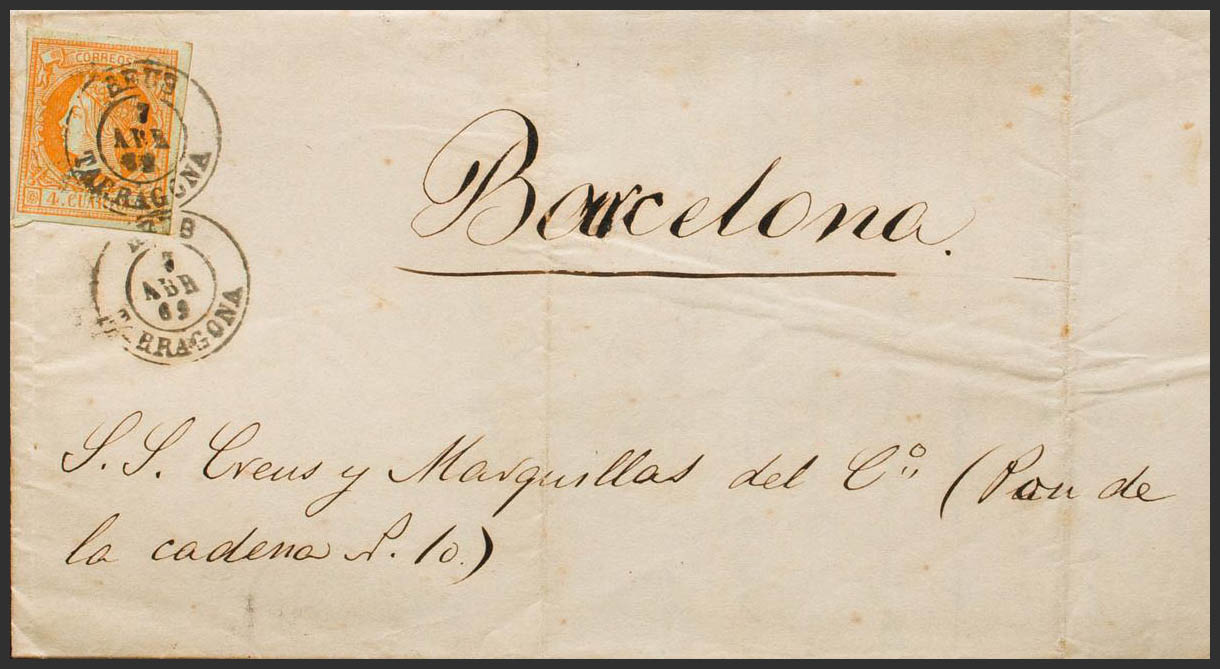 CORREOS
REUS
7
ABR
62
TARRAGONA
4. CU
REUS
ABR
TARRAGONA
Barcelona.
S. S. Creus y Marquillas del C.º (Pou de
la cadena N. 10.)